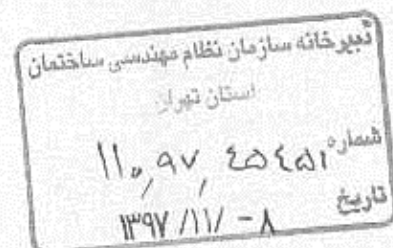 دبیرخانه سازمان نظام مهندسی ساختمان
استان تهران
شماره ۱۱۰,۹۷,۴۵۴۵۱
تاریخ ۱۳۹۷/۱۱/-۸